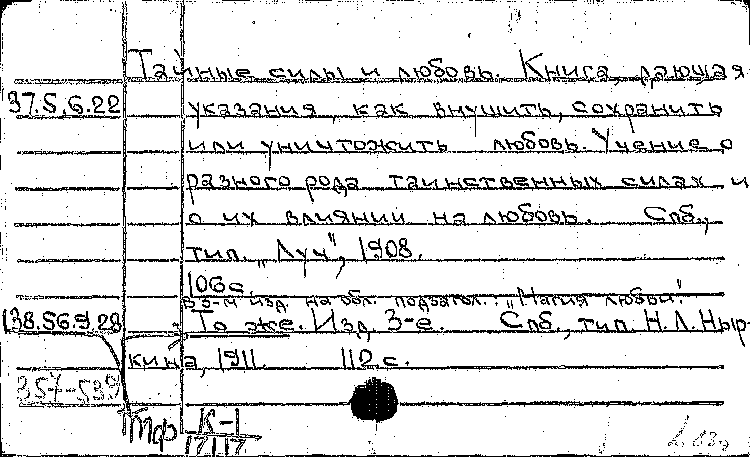 Тайные силы и любовь. Книга, дающая
37.5.6.22 указания, как внушить, сохранить
или уничтожить любовь. Учение о
разного рода таинственных силах и
о их влиянии на любовь. Спб.,
тип. „Луч", 1908.
106 с.
В 3-м изд. на обл. подзагол.: „Магия любви".
138.56.9.28 То же. Изд. 3-е. Спб., тип. Н.Л. Ныр-
кина, 1911. 112 с.
357-539
Тф К-1
17117